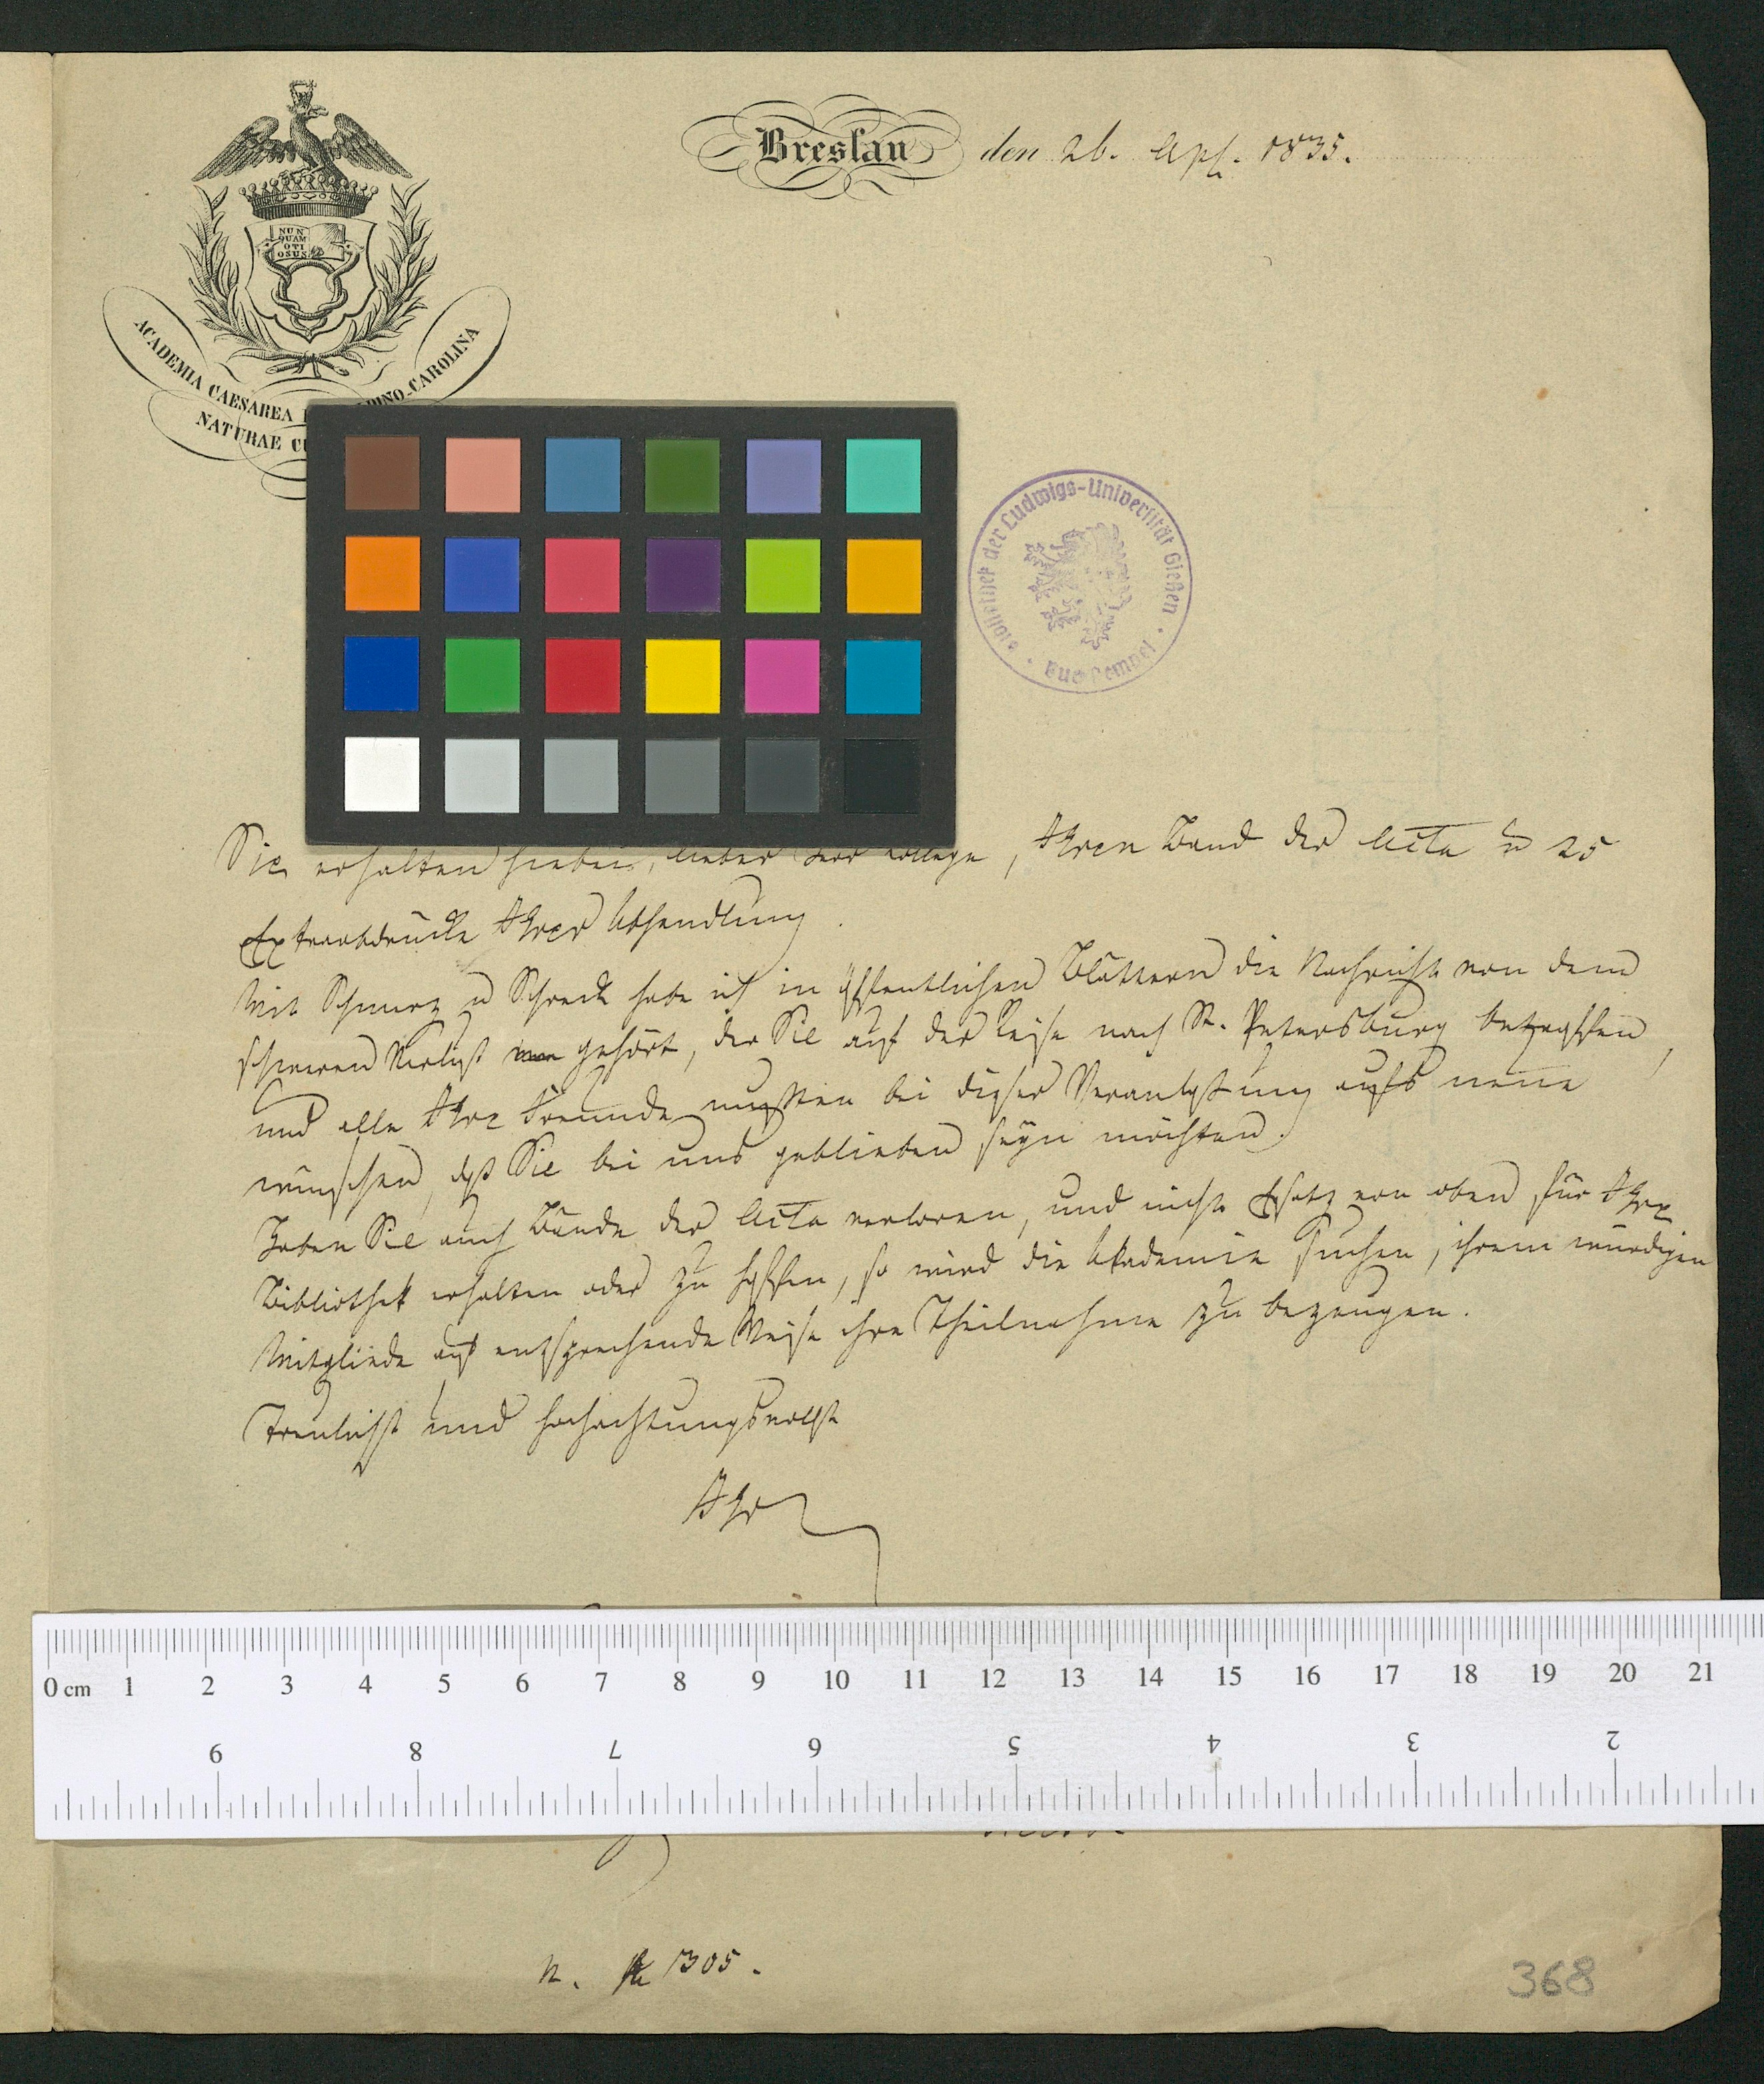 NUN
QUAM
OTI
OSUS
ACADEMIA CAESAREA CAROLINA
NATURAE
Breslau den 26. Apl. 1835.
Bibliothek der Ludwigs-Universität Gießen
Sie erhalten hiebei, lieber Herr College, Ihren Band der Acta u 25
Extraabdrücke Ihrer Abhandlung.
Mit Schmerz u Schreck habe ich in öffentlichen Blättern die Nachricht von dem
schweren Verlust gehört, der Sie auf der Reise nach St. Petersburg betroffen,
und alle Ihre Freunde mußten bei dieser Veranlassung aufs neue
wünschen, daß Sie bei uns geblieben seyn möchten.
Haben Sie auch Bände der Acta verloren, und nicht Ersatz von oben für Ihre
Bibliothek erhalten oder zu hoffen, so wird die Akademie suchen, ihrem würdigen
Mitgliede auf entsprechende Weise ihre Theilnahme zu bezeugen.
Treulichst und hochachtungsvollst
Ihr
0 cm 1 2 3 4 5 6 7 8 9 10 11 12 13 14 15 16 17 18 19 20 21
9 8 7 6 5 4 3 2
N. 1305.
368